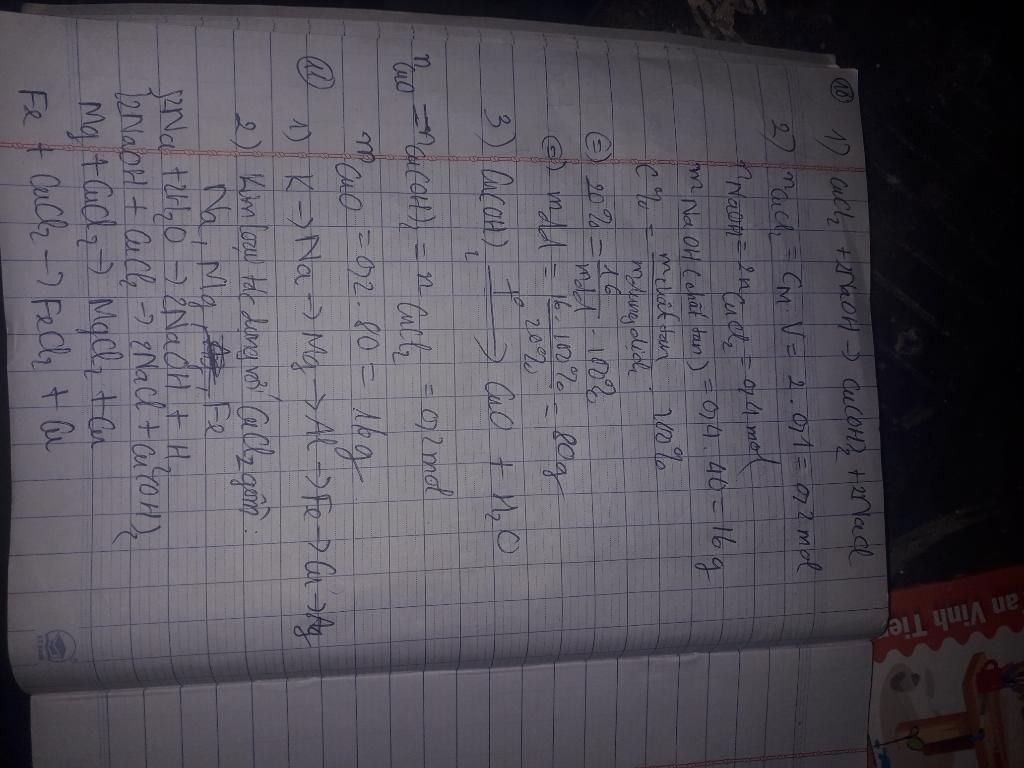 10
1) CuCl2 + 2NaOH → Cu(OH)2 + 2NaCl
2) nCuCl2 = CM . V = 2 . 0,1 = 0,2 mol
nNaOH = 2nCuCl2 = 0,4 mol
m NaOH (chất tan) = 0,4 . 40 = 16 g
C% = m chất tan / m dung dịch . 100%
(=) 20% = 16 / mdd . 100%
(=) mdd = 16 . 100% / 20% = 80g
3) Cu(OH)2 —t°→ CuO + H2O
nCuO = nCu(OH)2 = n CuCl2 = 0,2 mol
mCuO = 0,2 . 80 = 16g
11
1) K → Na → Mg → Al → Fe → Cu → Ag
2) Kim loại tác dụng với CuCl2 gồm:
Na, Mg, Fe
{2Na + 2H2O → 2NaOH + H2
{2NaOH + CuCl2 → 2NaCl + Cu(OH)2
Mg + CuCl2 → MgCl2 + Cu
Fe + CuCl2 → FeCl2 + Cu
an Vĩnh Tiế